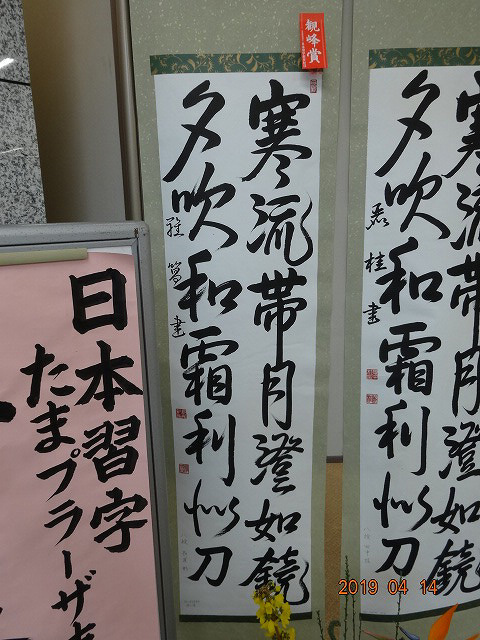 観峰賞
寒流帯月澄如鏡
夕吹和霜利似刀
寒流帯月澄如鏡
夕吹和霜利似刀
日本習字
たまプラーザ
2019 04 14